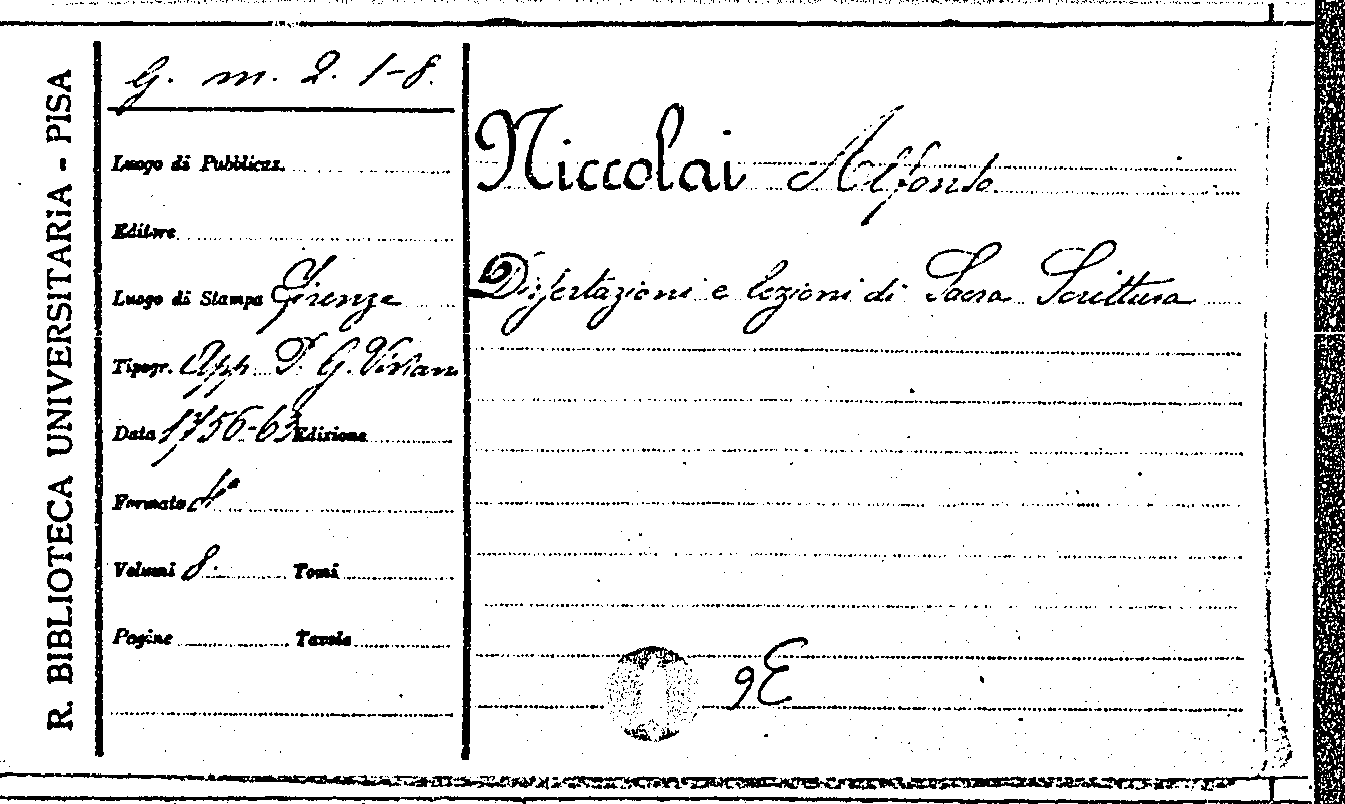 R. BIBLIOTECA UNIVERSITARIA - PISA
G. m. 2. 1-8.
Luogo di Pubblicaz.
Editore
Luogo di Stampa Firenze
Tipogr. App. P. G. Viviani
Data 1756-63 Edizione
Formato 4°
Volumi 8. Tomi
Pagine Tavole
Niccolai Alfonso
Dissertazioni e lezioni di Sacra Scrittura
9E